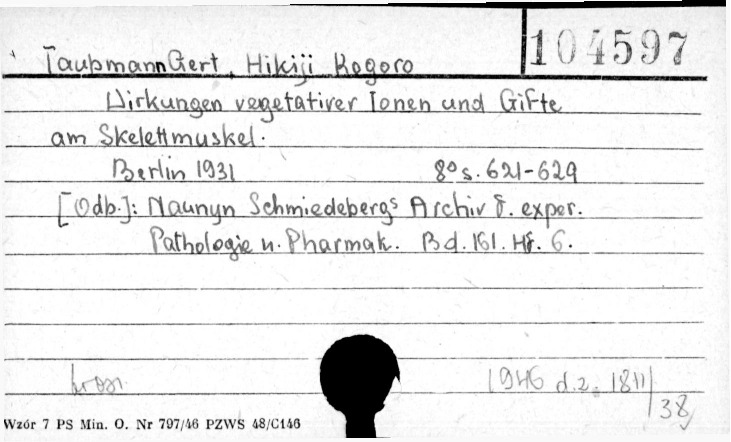 104597
Taubmann Gert, Hikiji Kogoro
Wirkungen vegetativer Ionen und Gifte
am Skelettmuskel.
Berlin 1931 8° s. 621-629
[Odb.]: Naunyn Schmiedebergs Archiv f. exper.
Pathologie u. Pharmak. Bd. 161. Hf. 6.
1946 d.z. 1811/38
Wzór 7 PS Min. O. Nr 797/46 PZWS 48/C146